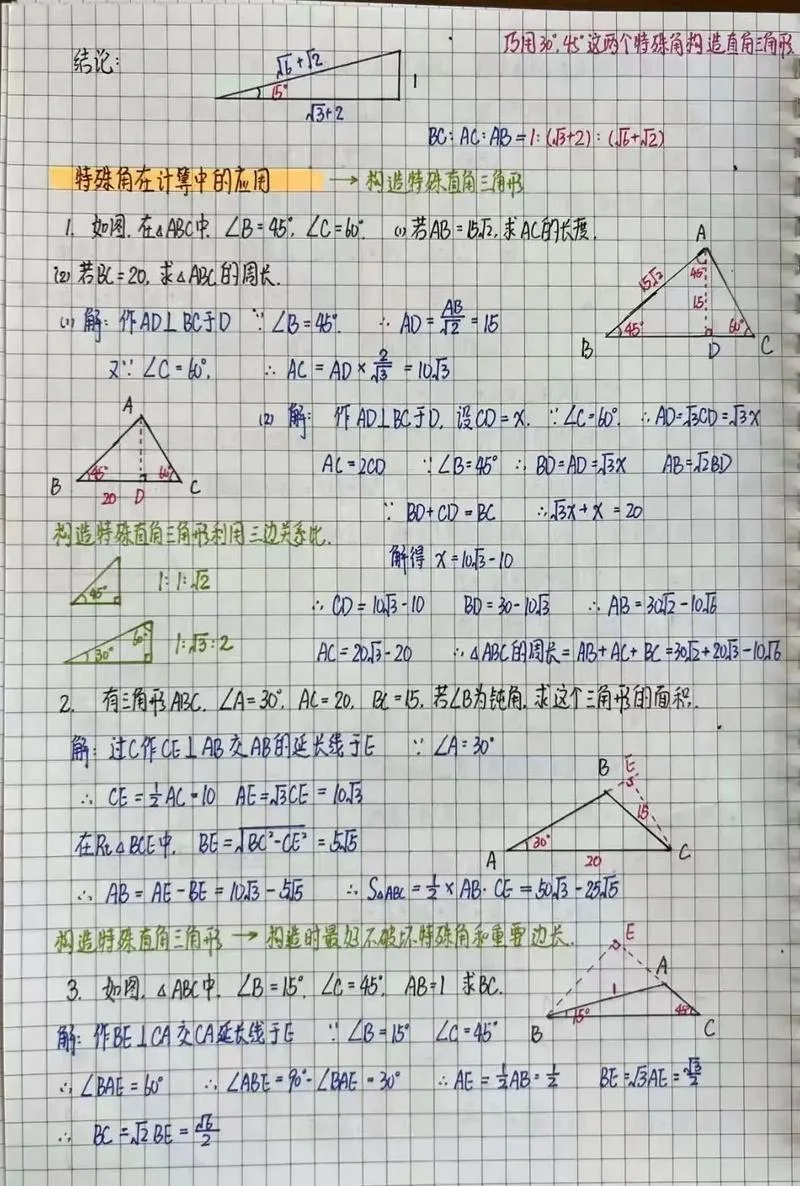 巧用30°,45°这两个特殊角构造直角三角形
结论:
√6+√2
15°
1
√3+2
BC:AC:AB=1:(√3+2):(√6+√2)
特殊角在计算中的应用 → 构造特殊直角三角形
1. 如图,在△ABC中,∠B=45°,∠C=60°. (1)若AB=15√2,求AC的长度.
(2)若BC=20,求△ABC的周长.
A
15√2
45°
15
45°
60°
B
D
C
(1)解:作AD⊥BC于D ∵∠B=45°. ∴AD=AB/√2=15
又∵∠C=60°. ∴AC=AD×2/√3=10√3
A
45°
60°
B
20
D
C
(2)解:作AD⊥BC于D,设CD=x. ∵∠C=60°. ∴AD=√3CD=√3x
AC=2CD ∵∠B=45° ∴BD=AD=√3x AB=√2BD
∵BD+CD=BC ∴√3x+x=20
解得 x=10√3-10
∴CD=10√3-10 BD=30-10√3 ∴AB=30√2-10√6
AC=20√3-20 ∴△ABC的周长=AB+AC+BC=30√2+20√3-10√6
构造特殊直角三角形利用三边关系比.
45°
1:1:√2
60°
30°
1:√3:2
2. 有三角形ABC,∠A=30°,AC=20,BC=15,若∠B为钝角,求这个三角形的面积.
解:过C作CE⊥AB交AB的延长线于E ∵∠A=30°
∴CE=½AC=10 AE=√3CE=10√3
在Rt△BCE中,BE=√(BC²-CE²)=5√5
∴AB=AE-BE=10√3-5√5 ∴S△ABC=½×AB·CE=50√3-25√5
B
E
15
A
30°
20
C
构造特殊直角三角形 → 构造时最好不破坏特殊角和重要边长.
3. 如图,△ABC中,∠B=15°,∠C=45°,AB=1 求BC.
E
A
1
B
15°
45°
C
解:作BE⊥CA交CA延长线于E ∵∠B=15° ∠C=45°
∴∠BAE=60° ∴∠ABE=90°-∠BAE=30° ∴AE=½AB=½ BE=√3AE=√3/2
∴BC=√2BE=√6/2